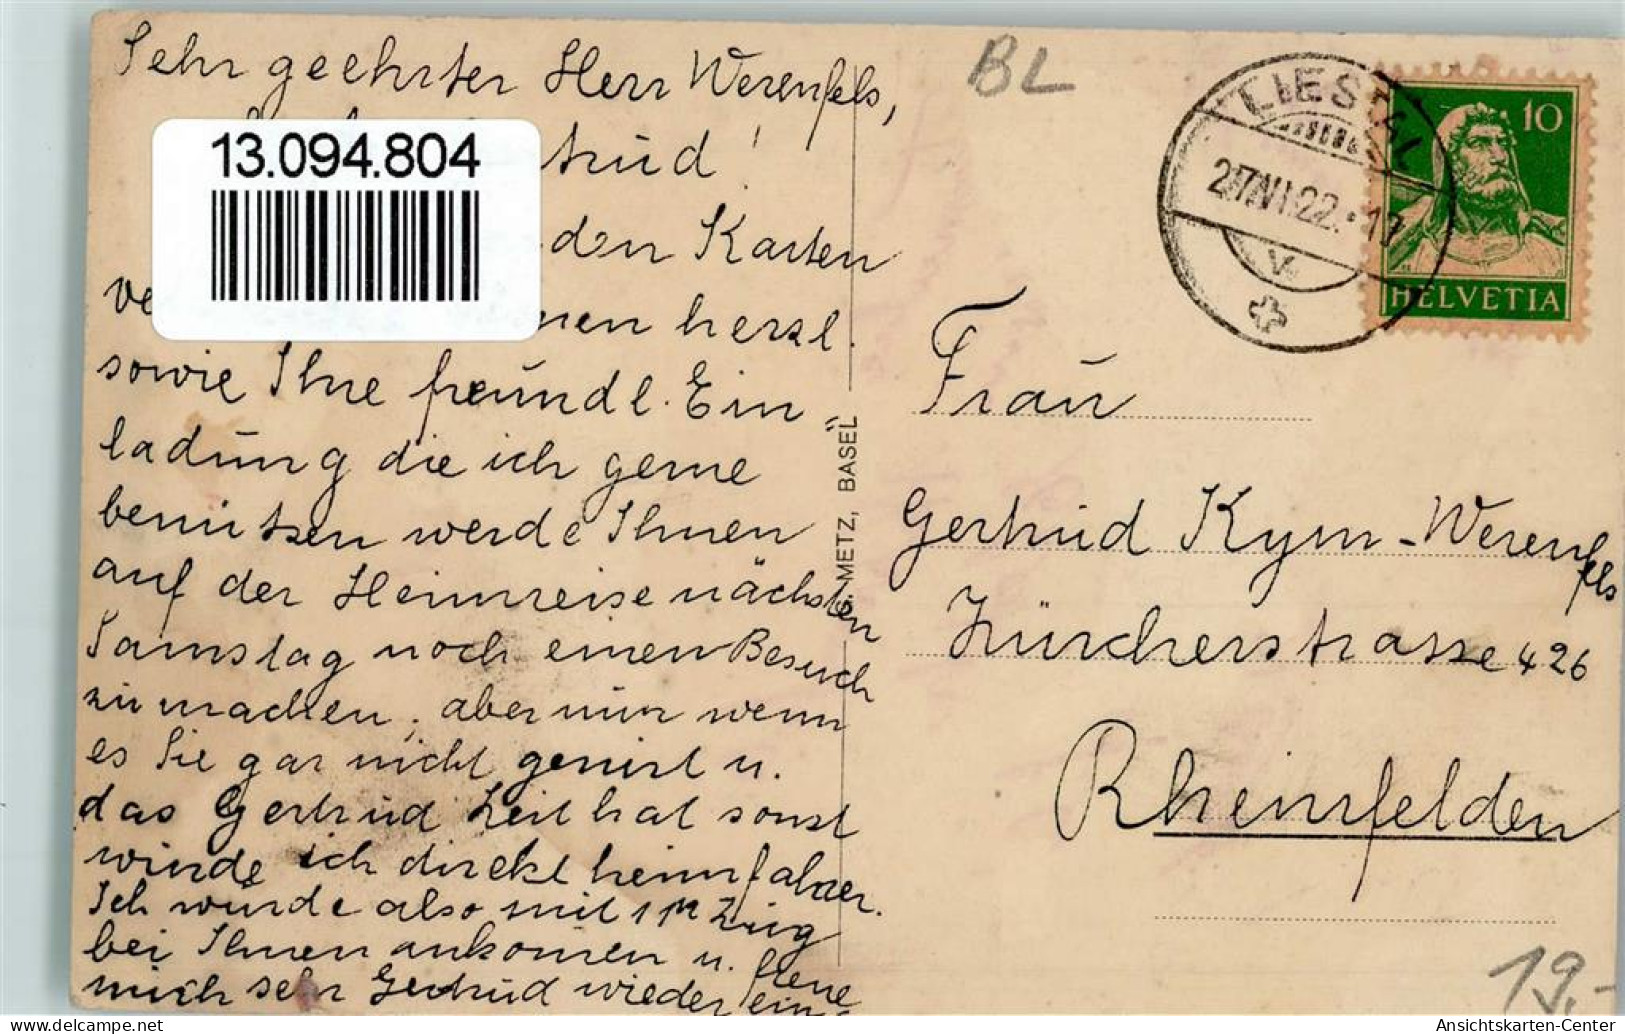 Sehr geehrter Herr Werenfels,
trud!
den Karten
ve nen herzl.
sowie Ihre freundl. Ein
ladung die ich gerne
benützen werde Ihnen
auf der Heimreise nächsten
Samstag noch einen Besuch
zu machen, aber nur wenn
es Sie gar nicht geniert u.
das Gertrud Zeit hat sonst
würde ich direkt heimfahren.
Ich würde also mit 1 Zug
bei Ihnen ankomen u. freue
mich sehr Gertrud wieder ein-
13.094.804
S. METZ, BASEL
BL
LIESTAL
27.VI.22.-17
V.
10
HELVETIA
Frau
Gertrud Kym-Werenfels
Zürcherstrasse 426
Rheinfelden
19.-
www.delcampe.net
Ansichtskarten-Center